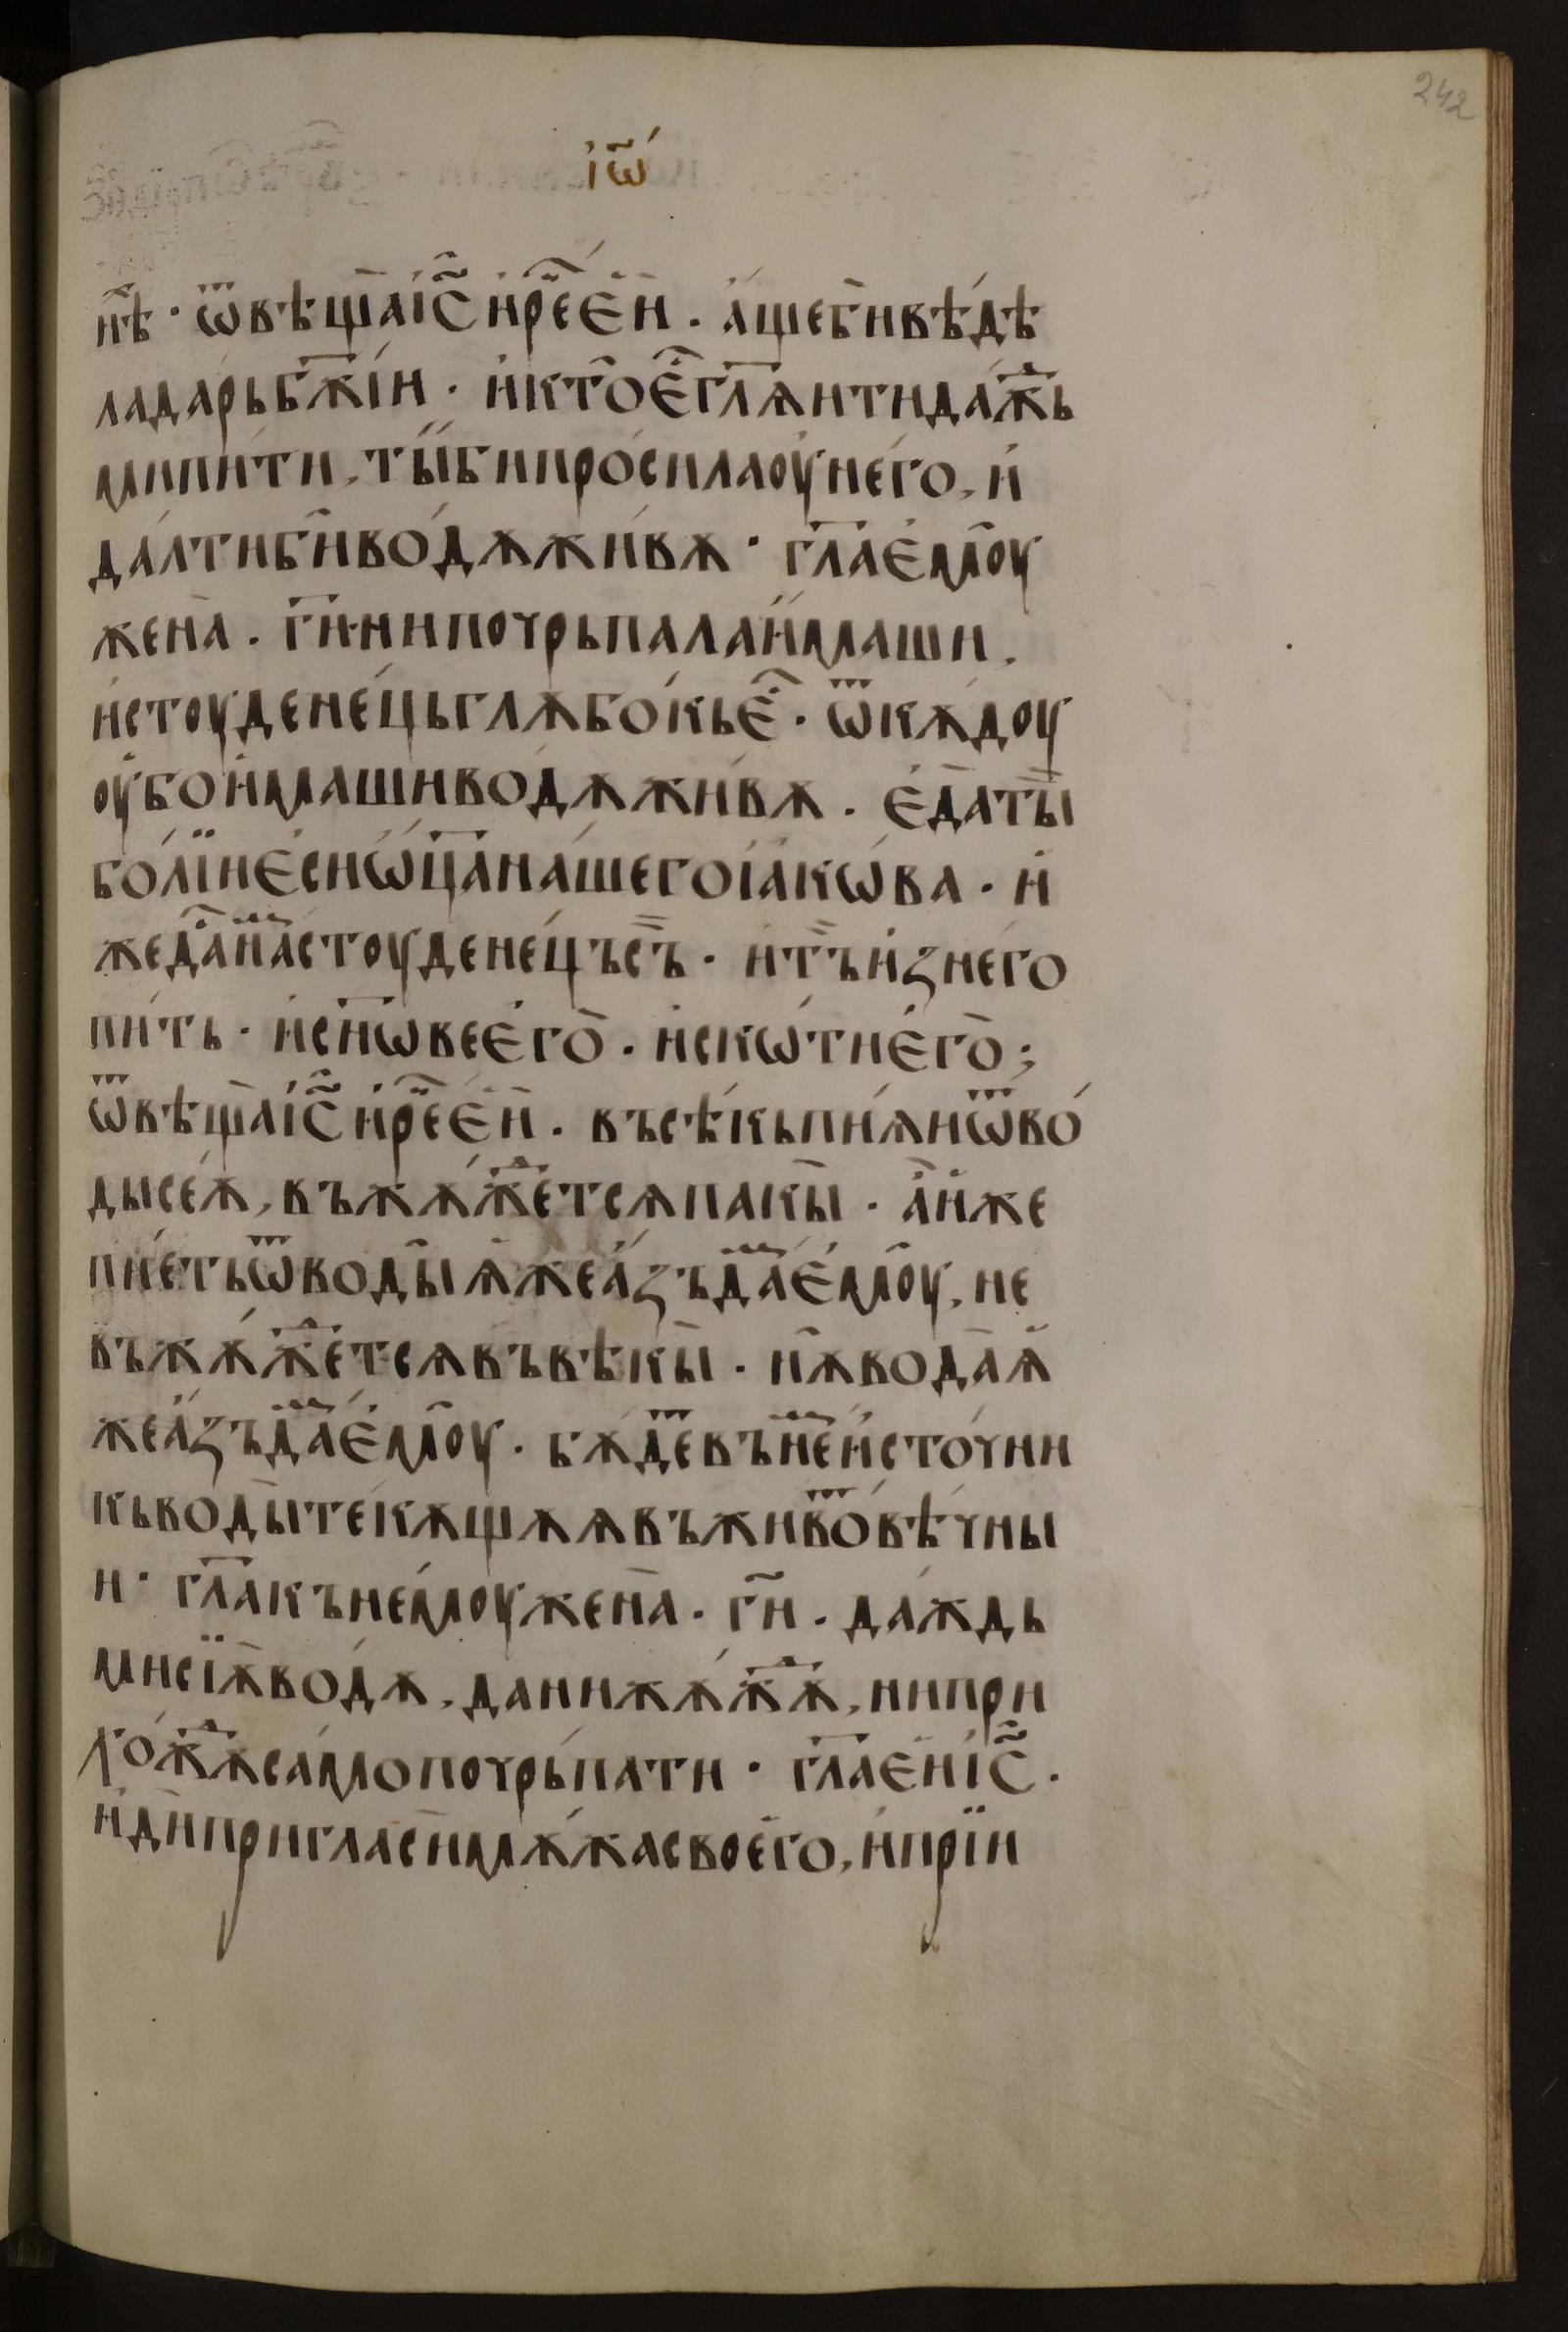 242
і҆ѡ҃
н҃ѣ · ѿвѣща̄ і҆с҃ и҆ рⷱ҇е е҆и̏ . а҆́ще би̑ вѣ́дѣ́
ла да́рь бж҃їи · и҆ кто̑ е҆ⷭ҇ гл҃ѧи ти да́ж̾ь
ми пи́ти , ты́ би просила оу҆ него̀ , и҆
да́л ти би̑ во́дѫ жи́вѫ · гл҃а е҆моу̑
жена̀ . гн҃ и ни почрьпала и҆́маши ,
и҆ стоуденець глѫбо́кь е҆ⷭ҇ · ѿкѫ́доу
оу҆бо и҆́маши во́дѫ жи́вѫ . е҆да̀ ты̀
бо́лїи е҆си ѡ҆ц҃а на́шего і҆а́кѡ́ва · и҆
же даⷭ҇ на̏ⷨ стоудене́цъ съ̏ · и҆ тъ̏ и҆з него
пи́ть · и҆ сн҃ове е҆го̀ . и҆ ско́ти е҆го̀ :
ѿвѣща̄ і҆с҃ и҆ рⷱ҇е е҆и̏ . въсѣ́кь пи́ѧи ѿ во
ды сеѧ̀ , въжѫ́жⷣетсѧ пакы̀ · а҆ и҆же
пи́еть ѿ воды̑ ѧ҆́же а҆́зъ даⷨ е҆моу̑ , не
въжѫ́жⷣетсѧ въ вѣкы̑ · нѫ̑ вода̀ ѧ҆̀
же а҆́зъ даⷨ е҆моу̑ . бѫ́деⷮ въ неⷨ и҆сто́чни
кь воды̀ текѫщѫѧ въ живоⷮ вѣ́чны
и · гл҃а къ немоу жена̀ . гн҃ и . да́ждь
ми сїѫ̀ во́дѫ , да ни жѫ́жⷣѫ , ни при
хо́жⷣѫ са́мо почрьпати · гл҃а е҆и і҆с҃ .
и҆ди̏ пригласи̏ мѫ́жа своего̀ , и҆ прїи